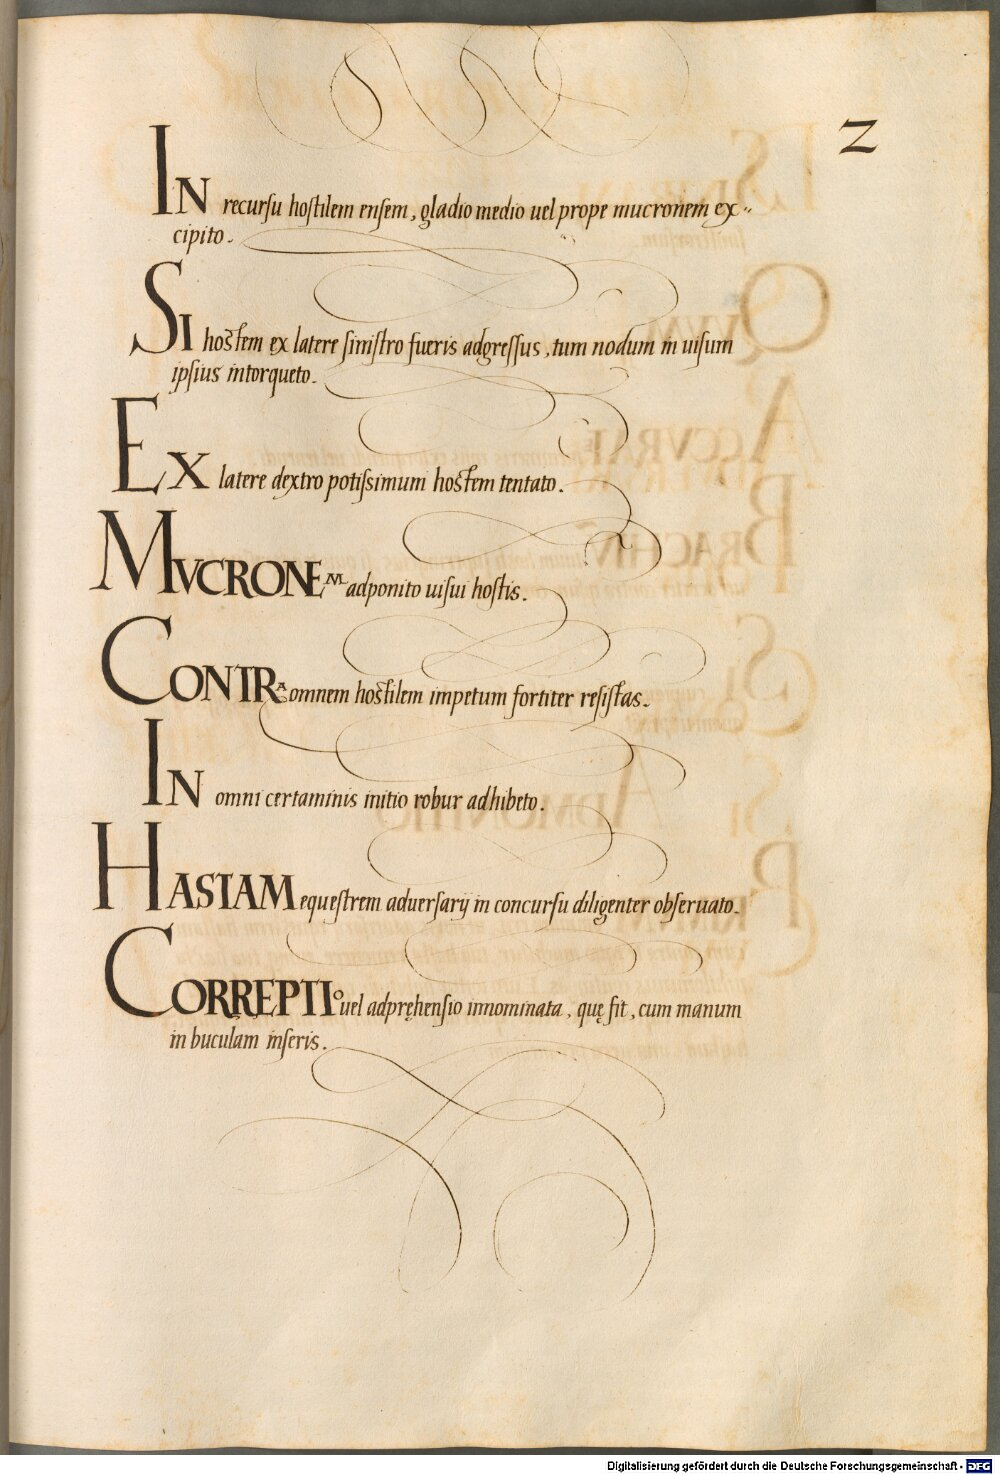 2
IN recursu hostilem ensem, gladio medio uel prope mucronem ex-
cipito.
SI hostem ex latere sinistro fueris adgressus, tum nodum in uisum
ipsius intorqueto.
EX latere dextro potissimum hostem tentato.
MVCRONEM adponito uisui hostis.
CONTRA omnem hostilem impetum fortiter resistas.
IN omni certaminis initio robur adhibeto.
HASTAM equestrem adversarij in concursu diligenter obseruato.
CORREPTIO uel adpręhensio innominata, quę fit, cum manum
in buculam inseris.
Digitalisierung gefördert durch die Deutsche Forschungsgemeinschaft - DFG